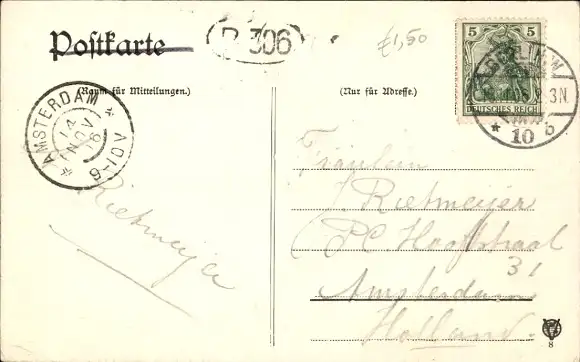 Postkarte
P. 306
£1,50
(Raum für Mitteilungen.)
(Nur für Adresse.)
5 5
DEUTSCHES REICH
BERLIN
3N.
* 10 b
* AMSTERDAM *
14
NOV
16
9-10V
Rietmeijer
Fräulein
J Rietmeijer
P.C. Hooftstraat
31
Amsterdam
Holland
8